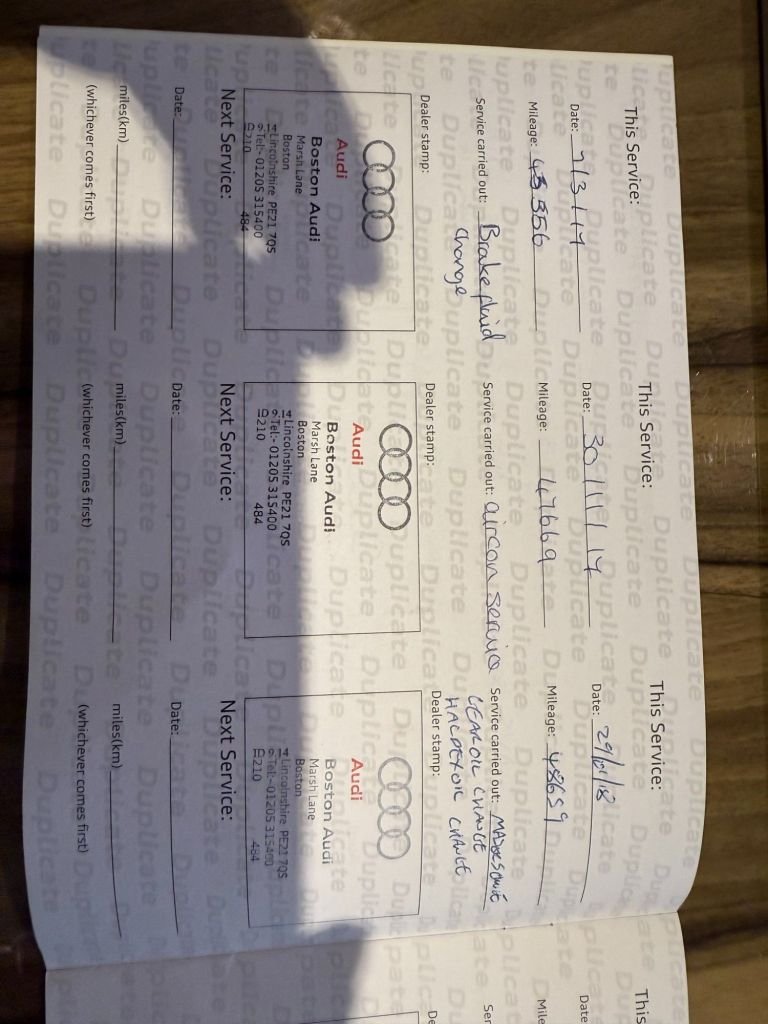 This Service:
Date: 7/3/17
Mileage: 43356
Service carried out: Brake fluid
change
Dealer stamp:
Audi
Boston Audi
Marsh Lane
Boston
Lincolnshire PE21 7QS
Tel:- 01205 315400
210 484
Next Service:
Date:
miles(km)
(whichever comes first)
This Service:
Date: 30/11/17
Mileage: 47669
Service carried out: aircon service
Dealer stamp:
Audi
Boston Audi
Marsh Lane
Boston
Lincolnshire PE21 7QS
Tel:- 01205 315400
210 484
Next Service:
Date:
miles(km)
(whichever comes first)
This Service:
Date: 29/01/18
Mileage: 48659
Service carried out:
GEAR OIL CHANGE
HALDEX OIL CHANGE
Dealer stamp:
Audi
Boston Audi
Marsh Lane
Boston
Lincolnshire PE21 7QS
Tel:- 01205 315400
210 484
Next Service:
Date:
miles(km)
(whichever comes first)
This
Date
Mile
Ser
De
Duplicate Duplicate Duplicate Duplicate